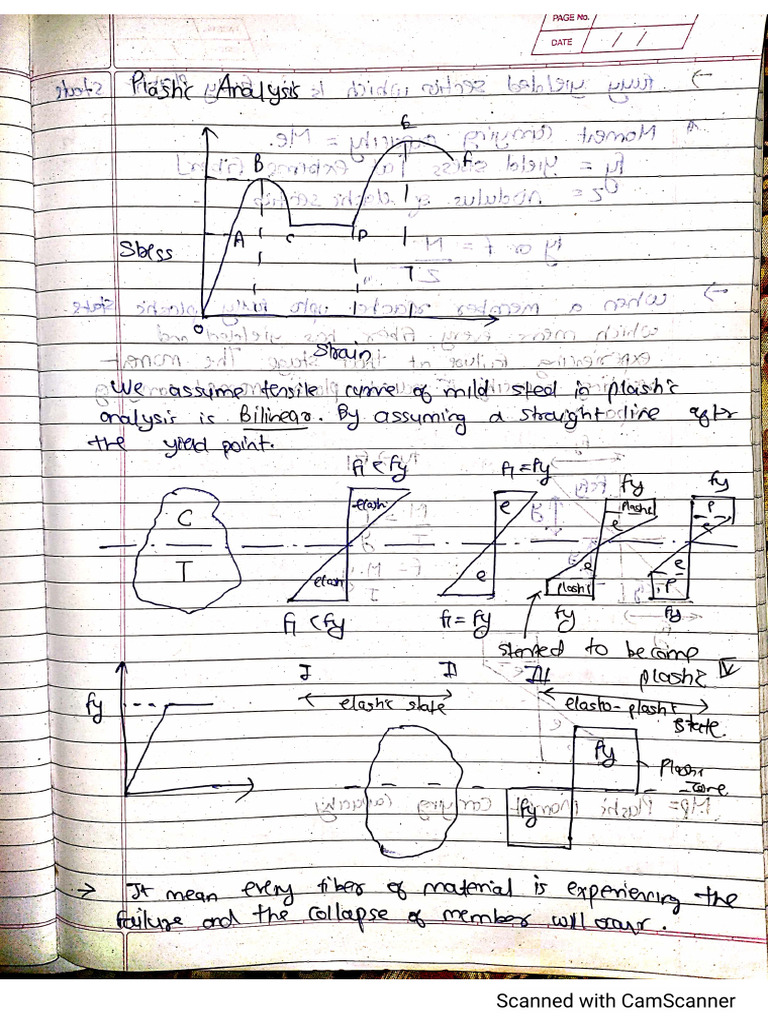 PAGE No.
DATE / /
Plastic Analysis
E
B
F
A
C
D
Stress
O
Strain
We assume tensile curve of mild steel in plastic
analysis is Bilinear. By assuming a straight line after
the yield point.
f1 < fy
f1 = fy
fy
fy
C
T
elastic
elastic
e
e
Plastic
e
e
Plastic
P
e
e
P
f1 < fy
f1 = fy
fy
fy
started to become
plastic
I
II
III
IV
elastic state
elasto-plastic
state.
fy
fy
fy
Plastic
zone
→ It mean every fiber of material is experiencing the
failure and the collapse of member will occur.
Scanned with CamScanner